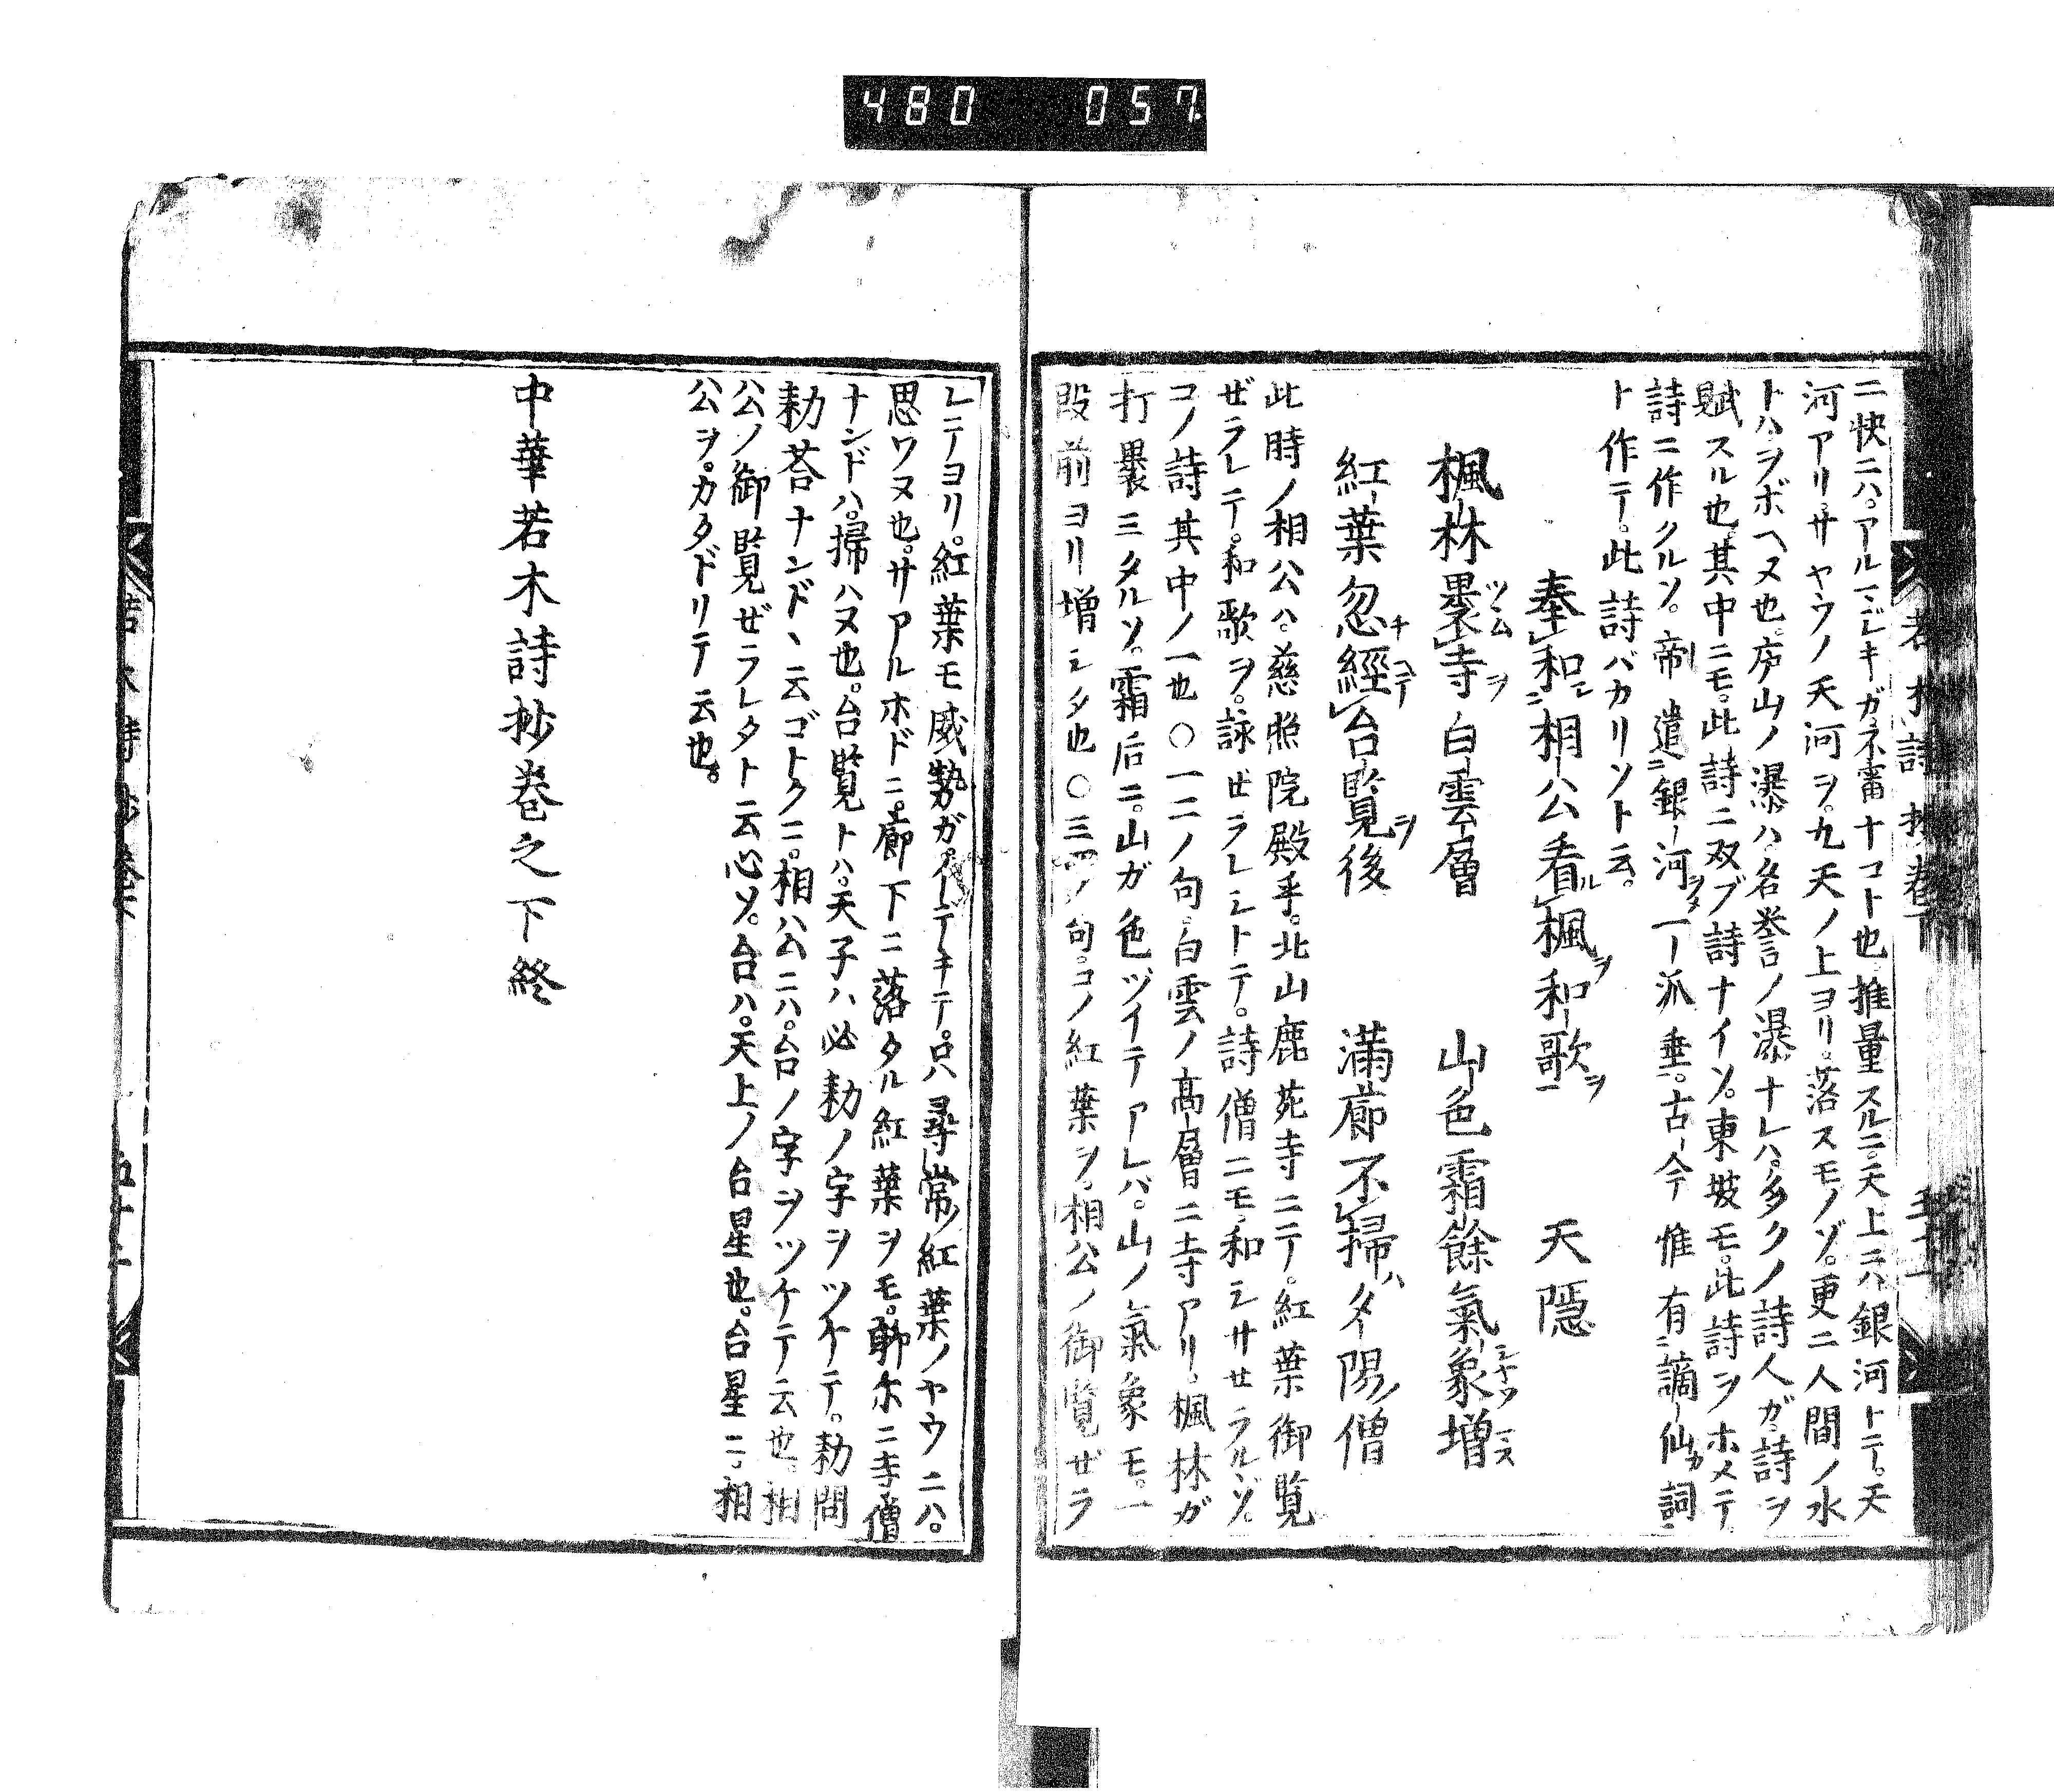 480 057
若木詩抄卷下
ニ快ニハ。アルマジキガ。不審ナコト也。推量スルニ。天上ニハ銀河トテ。天
河アリ。サヤウノ天河ヲ。九天ノ上ヨリ。落スモノゾ。更ニ人間ノ水
トハヲボヘヌ也。庐山ノ瀑ハ。名誉ノ瀑ナレハ。多クノ詩人ガ。詩ヲ
賦スル也。其中ニモ。此詩ニ双ブ詩ナイソ。東坡モ。此詩ヲホメテ。
詩ニ作クルソ。帝遣銀河一派垂。古今惟有謫仙詞
ト作テ。此詩バカリソト云。
奉和相公看楓和歌 天隠
楓林畳寺白雲層 山色霜餘氣象増
紅葉忽經台覧後 満廊不掃夕陽僧
此時ノ相公ハ。慈照院殿乎。北山鹿苑寺ニテ。紅葉御覧
ぜラレテ。和歌ヲ。詠せラレシトテ。詩僧ニモ。和シサせラルゾ。
コノ詩其中ノ一也〇一二ノ句。白雲ノ高層ニ寺アリ。楓林ガ
打畳ミタルソ。霜后ニ。山ガ色ヅイテアレバ。山ノ氣象モ。一
段前ヨリ増シタ也〇三四ノ句。コノ紅葉ヲ。相公ノ御覧ぜラ
レテヨリ。紅葉モ威勢ガ。イデキテ。只ハ尋常ノ紅葉ノヤウニハ。
思ワヌ也。サアルホドニ。廊下ニ落タル紅葉ヲモ。聊尓ニ寺僧
ナンドハ。掃ハヌ也。台覧トハ。天子ハ必勅ノ字ヲツケテ。勅問
勅荅ナンドヽ云ゴトクニ。相公ニハ。台ノ字ヲツケテ云也。相
公ノ御覧ぜラレタト云心ソ。台ハ。天上ノ台星也。台星ニ。相
公ヲ。カタドリテ云也。
中華若木詩抄巻之下終
五十二